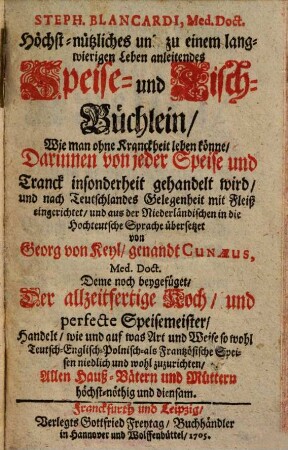 STEPH. BLANCARDI, Med. Doct.
Höchst-nützliches un zu einem lang-
wierigen Leben anleitendes
Speise- und Tisch-
Büchlein/
Wie man ohne Kranckheit leben könne/
Darinnen von jeder Speise und
Tranck insonderheit gehandelt wird/
und nach Teutschlandes Gelegenheit mit Fleiß
eingerichtet/ und aus der Niederländischen in die
Hochteutsche Sprache übersetzet
von
Georg von Keyl/ genandt CUNÆUS,
Med. Doct.
Deme noch beygefüget/
Der allzeitfertige Koch/ und
perfecte Speisemeister/
Handelt/ wie und auf was Art und Weise so wohl
Teutsch-Englisch-Polnisch-als Frantzösische Spei-
sen niedlich und wohl zuzurichten/
Allen Hauß-Vätern und Müttern
höchst-nöthig und diensam.
Franckfurth und Leipzig/
Verlegts Gottfried Freytag/ Buchhändler
in Hannover und Wolffenbüttel/ 1705.